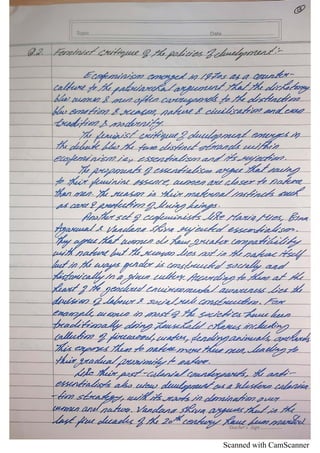 Topic Date
Q.2. Feminist critique of the policies of development :-
Ecofeminism emerged in 1970s as a counter-
culture to the patriarchal argument that the dichotomy
b/w women & men often corresponds to the distinction
b/w emotion & reason, nature & civilisation and even
tradition & modernity.
The feminist critique of development emerges in
the debate b/w the two distinct strands within
ecofeminism i.e., essentialism and its rejection.
The proponents of essentialism argue that owing
to their feminine essence, women are closer to nature
than men. The reason is their maternal instincts such
as care & protection of living beings.
Another set of ecofeminists like Maria Mies, Bina
Agarwal & Vandana Shiva rejected essentialism.
They agree that women do have greater compatibility
with nature but the reason lies not in the nature itself
but in the ways gender is constructed socially and
historically in a given culture. According to them at the
heart of the gendered environmental awareness lies the
division of labour & social role construction. For
example, women in most of the societies have been
traditionally doing household chores including
collection of firewood, water, feeding animals,
This exposes them to nature more than men, leading to
their gradual proximity to nature.
Like their post-colonial counterparts, the anti-
essentialists also view development as a Western colonisa-
-tion strategy, with its roots in domination over
women and nature. Vandana Shiva argues that in the
last five decades of the 20th century have
Teacher's Sign
Scanned with CamScanner